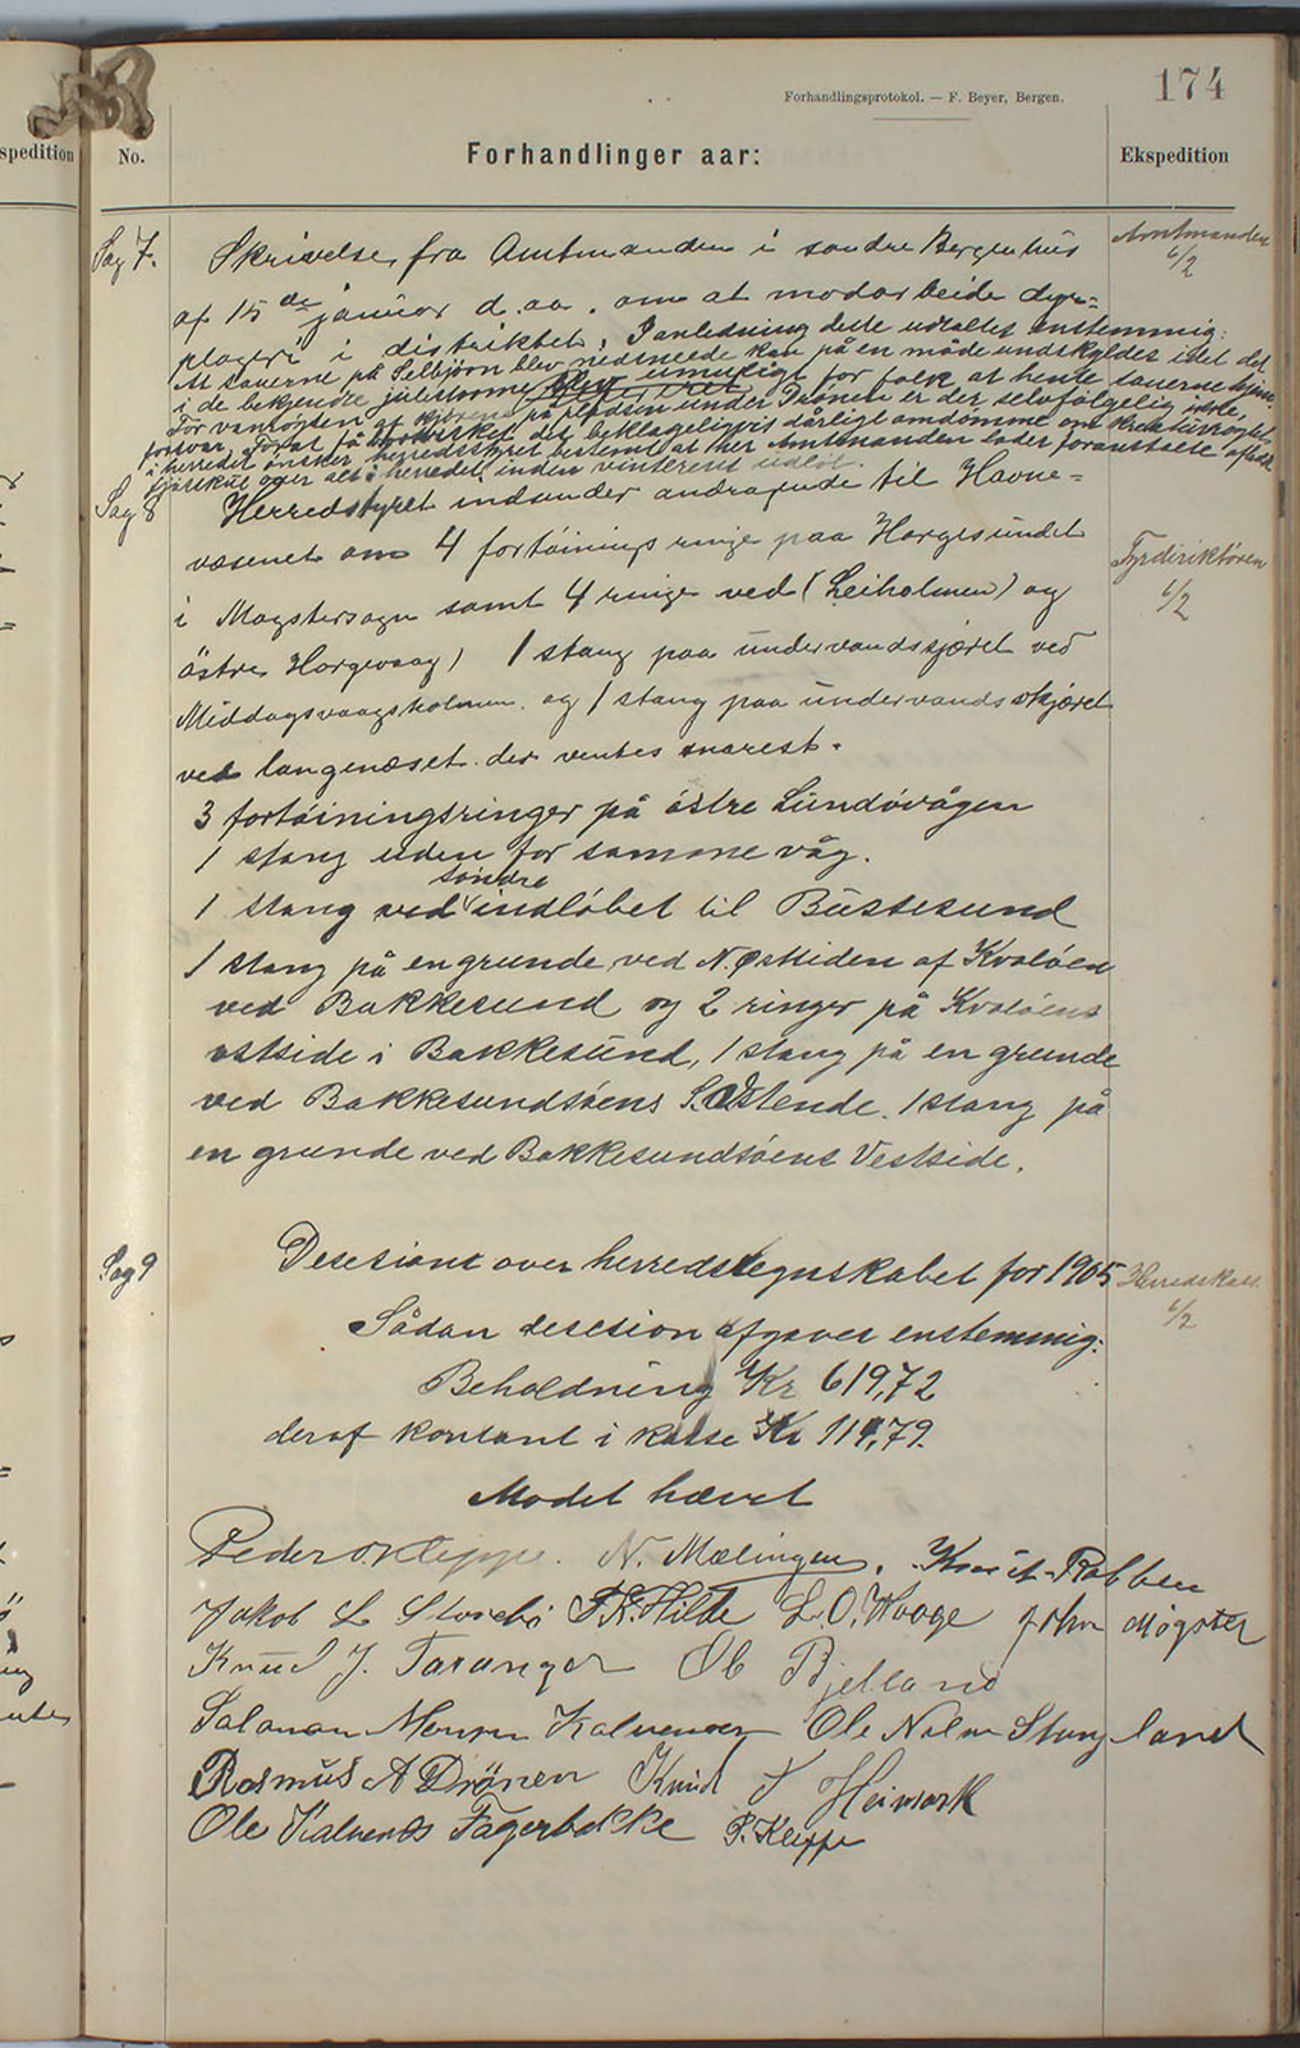 174
Forhandlingsprotokol. — F. Beyer, Bergen.
spedition
No.
Forhandlinger aar:
Ekspedition
Sag 7.
Skrivelse fra Amtmanden i søndre Bergenhus
Amtmanden
6/2
af 15 de januar d. aa. om at modarbeide dyr=
plageri i distriktet. I anledning dette udtaltes enstemmig:
At sauerne på Selbjørn blev nedsneede kan på en måde undskyldes idet det
i de bekjendte julestorme blev umuligt for folk at hente sauerne hjem.
For vanrøgten af kjørene på pladsen under Drønen er der selvfølgelig ikke
forsvar. For at få det beklageligvis dårlige omdømme om kreaturrøgtet
i herredet ønsker herredsstyret bestemt at her Amtmanden lader foranstalte afholdt
over alt i herredet inden vinterens udløb.
Sag 8
Herredstyret indsender andragende til Havne=
væsenet om 4 fortøinings ringe paa Horgesundet
Fyrdiriktøren
6/2
i Møgstersogn samt 4 ringe ved (Leiholmen) og
østre Horgevaag) 1 stang paa undervandsskjæret ved
Middagsvaagsholmen og 1 stang paa undervandsskjæret
ved langenæset der ventes snarest.
3 fortøiningsringer på østre Lundøvågen
1 stang uden for samme våg.
søndre
1 stang ved indløbet til Bussesund
1 stang på en grunde ved N. Østsiden af Kvaløen
ved Bakkesund og 2 ringer på Kvaløens
østside i Bakkesund, 1 stang på en grunde
ved Bakkesundsøens S. Østende. 1 stang på
en grunde ved Bakkesundsøens Vestside.
Sag 9
Desesions over herredsregnskabet for 1905
Herredskass.
6/2
Sådan desesion afgaves enstemmig:
Beholdning Kr 619,72
deraf kontant i kasse Kr 114,79.
Mødet hævet
Peder O. Kleppe. N. Mælingen. Knut Rabben
Jakob L Storebø T. K. Hilde L. O. Waage John Møgster
Knud J. Taranger Ob Bjelland
Salamon Monsen Kalvenes Ole Nilsen Stangeland
Rasmus A Drönen Knud J Heimark
Ole Kalvenes Fagerbakke P. Kleppe